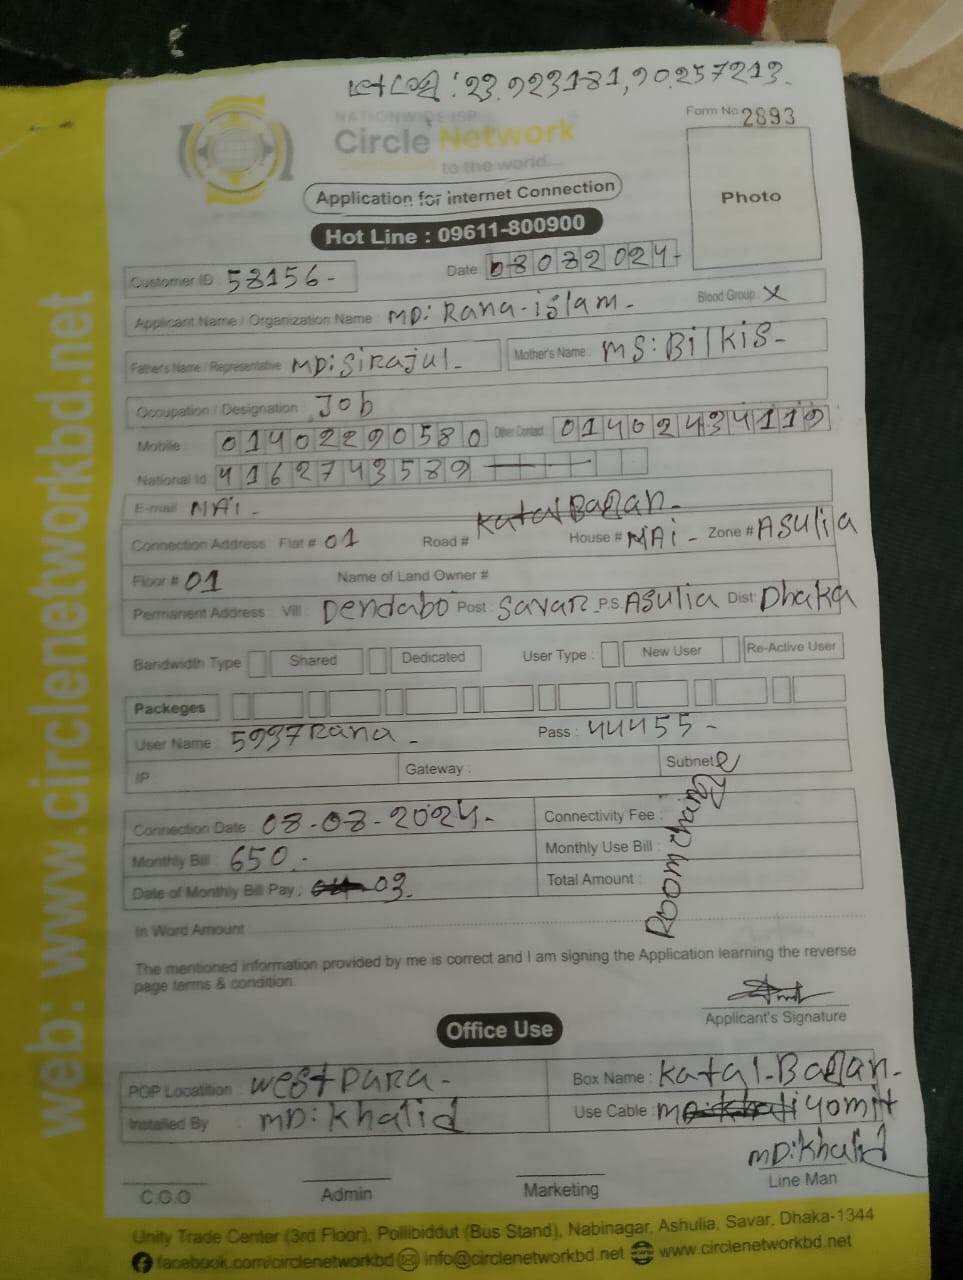 লোকেশন : 23.923181, 90.257213.
NATIONWIDE ISP
Form No 2893
Circle Network
to the world....
Photo
Application for internet Connection
Hot Line : 09611-800900
Customer ID : 53156 - Date: 03032024
Applicant Name / Organization Name : MD: Rana-islam - Blood Group : X
Father's Name / Representative : MD: Sirajul - Mother's Name : MS: Bilkis -
Occupation / Designation : Job
Mobile : 01402290580 Other Contact : 01402434119
National Id 4162743589
E-mail NAi -
Connection Address Flat # 01 Road # Katal Bagan - House # NAi - Zone # Asulia
Floor # 01 Name of Land Owner #
Permanent Address Vill : Dendabo Post : Savar P.S. Asulia Dist: Dhaka
Bandwidth Type Shared Dedicated User Type : New User Re-Active User
Packeges
User Name : 5997Rana - Pass : 44455 -
IP Gateway : Subnet
Connection Date : 03-03-2024 - Connectivity Fee :
Monthly Bill : 650 - Monthly Use Bill :
Date of Monthly Bill Pay : 03 - Total Amount :
In Word Amount
The mentioned information provided by me is correct and I am signing the Application learning the reverse
page terms & condition.
Applicant's Signature
Office Use
POP Locatition : west para - Box Name : Katal-Bagan -
Installed By MD: Khalid Use Cable : 40mit
MD: Khalid
C.O.O Admin Marketing Line Man
Unity Trade Center (3rd Floor), Pollibiddut (Bus Stand), Nabinagar, Ashulia, Savar, Dhaka-1344
facebook.com/circlenetworkbd info@circlenetworkbd.net www.circlenetworkbd.net
web: www.circlenetworkbd.net